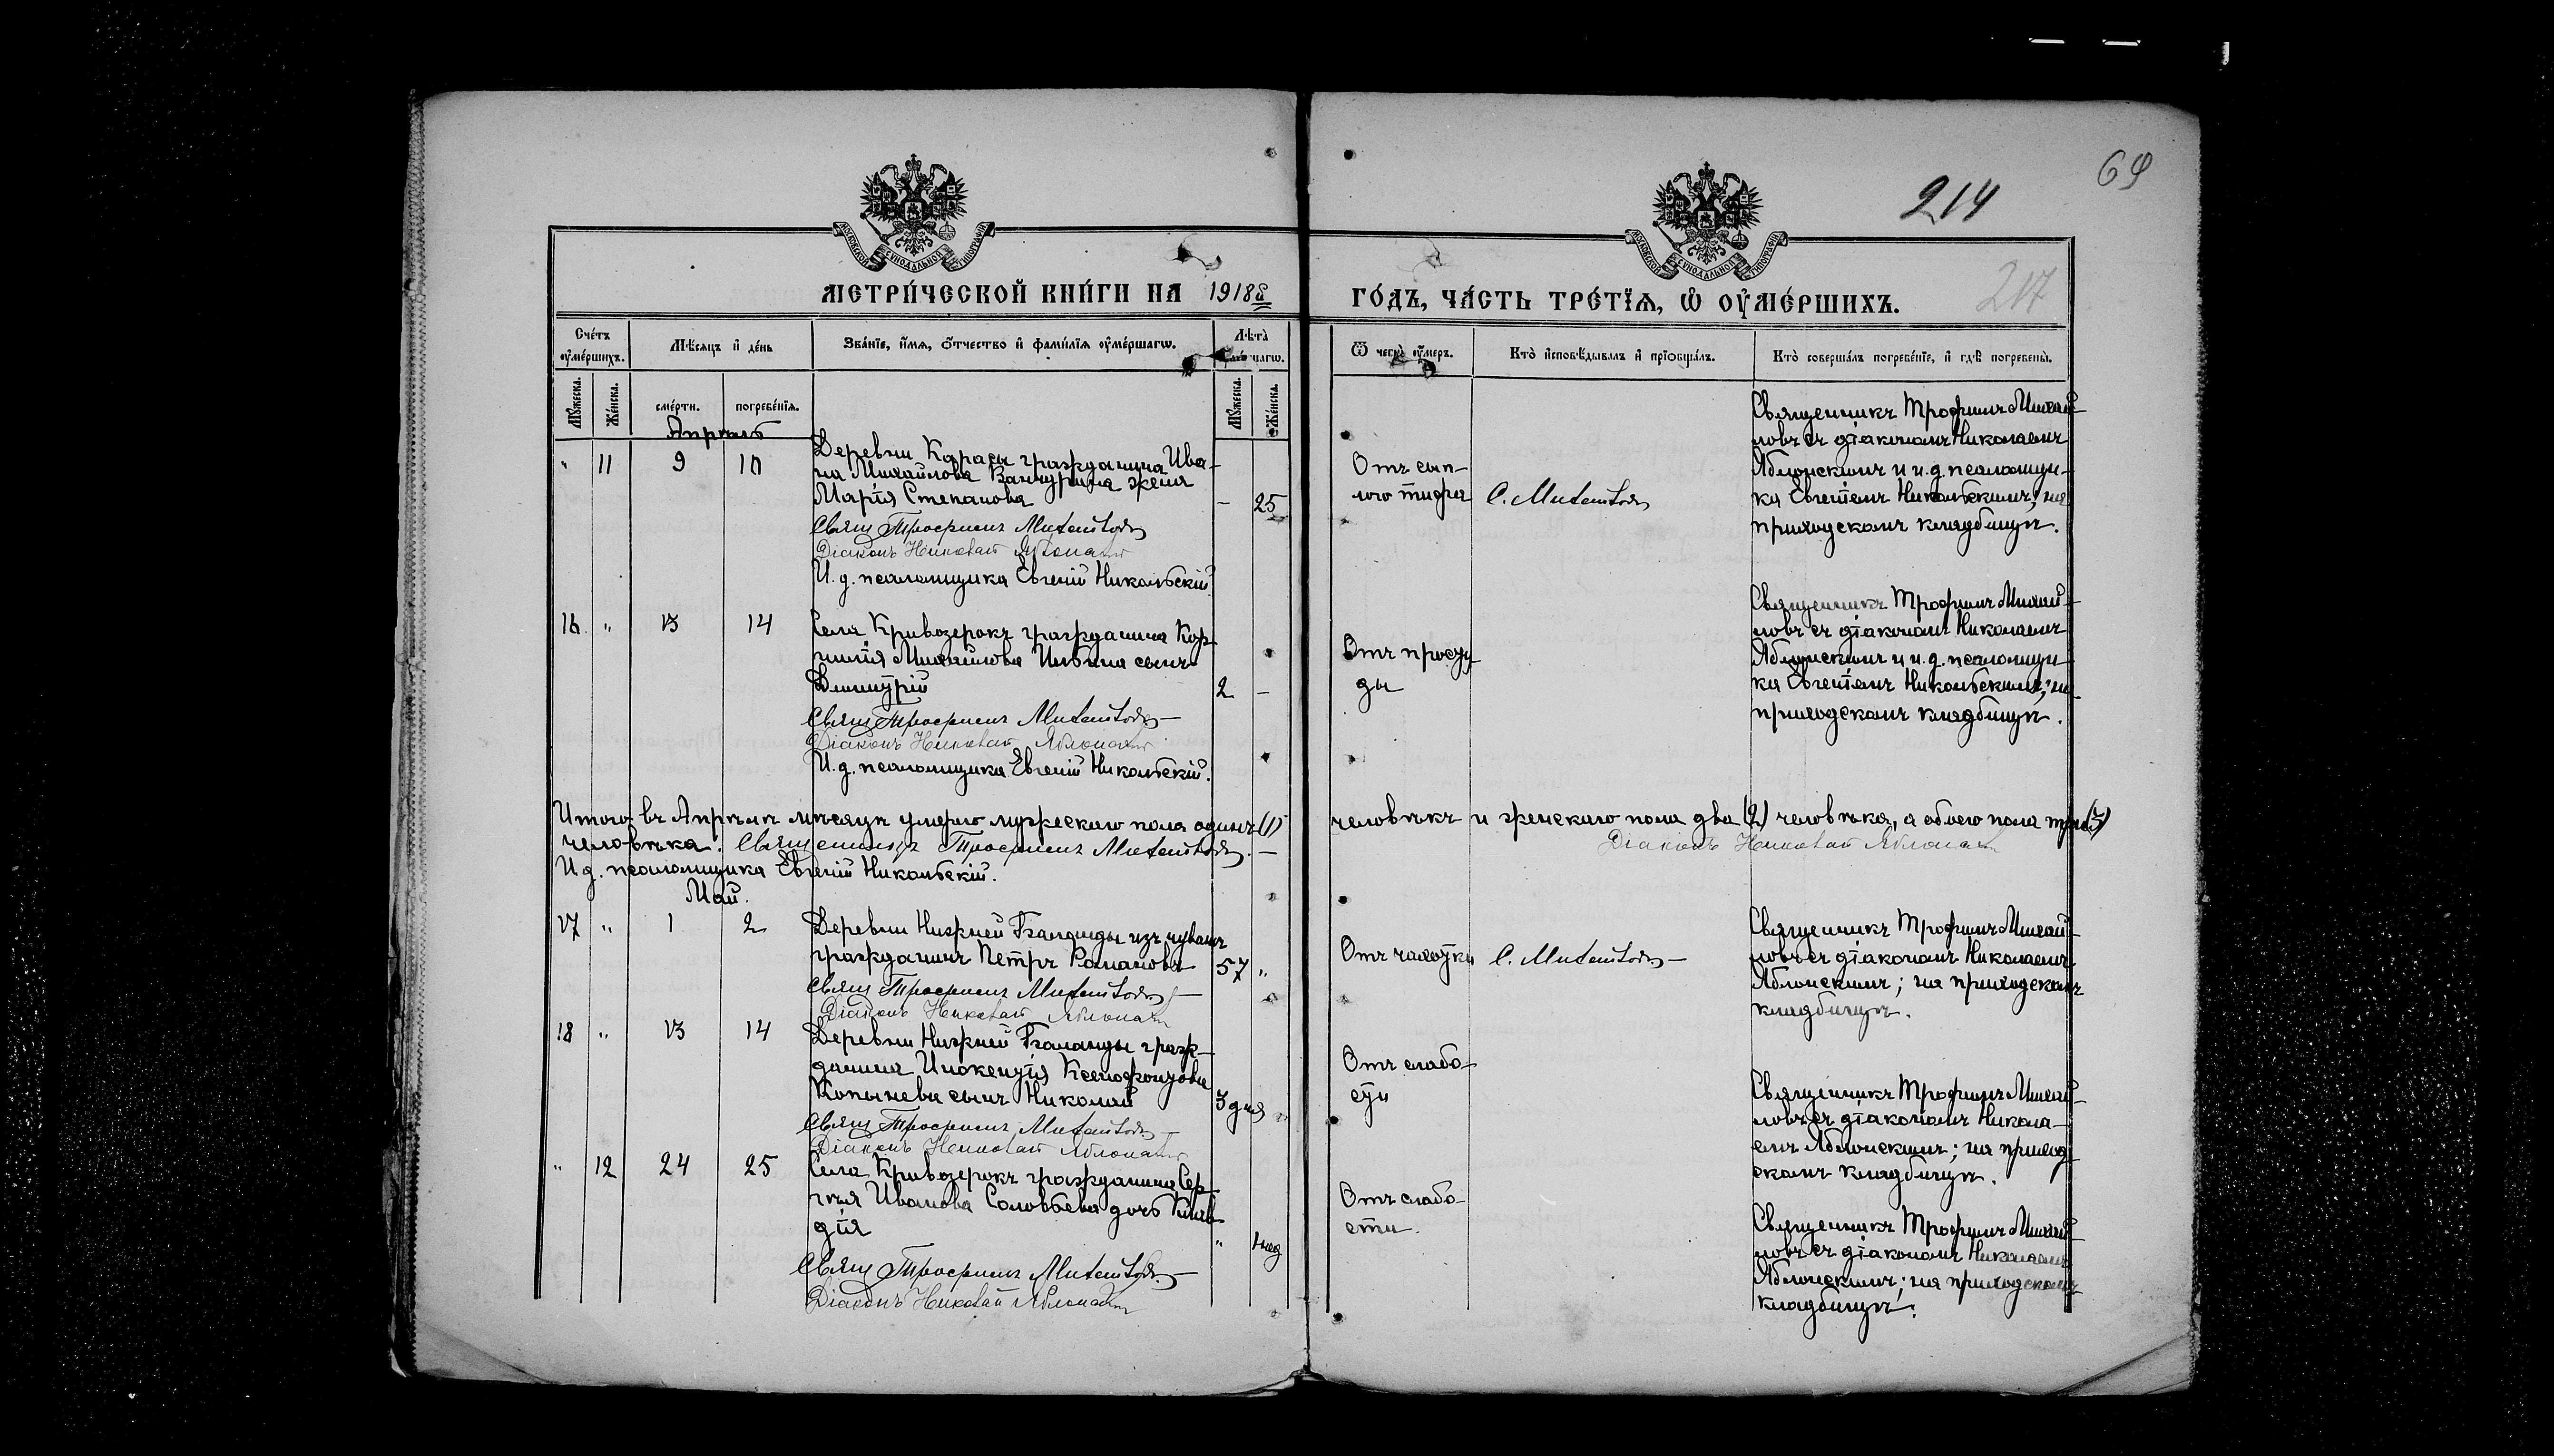 69
214
217
МОСКОВСКОЙ СѴНОДАЛЬНОЙ ТИПОГРАФІИ
МОСКОВСКОЙ СѴНОДАЛЬНОЙ ТИПОГРАФІИ
МЕТРИ́ЧЕСКОЙ КНИ́ГИ НА 1918
ГО́ДЪ, ЧА́СТЬ ТРЕ́ТЇѦ, Ѡ ОУМЕ́РШИХЪ.
Сче́тъ оуме́ршихъ.
Мѣ́сяцъ и де́нь
Зва́нїе, и́мѧ, о́тчество и фами́лїѧ оуме́ршагѡ.
Лѣта̀
Ѿ чегѡ̀ оу́меръ.
Кто̀ и́сповѣ́дывалъ и прїѡбща́лъ.
Кто̀ соверша́лъ погребе́нїе, и гдѣ̀ погребены̀.
Мꙋ́жеска.
Же́нска.
сме́рти.
погребе́нїѧ.
Мꙋ́жеска.
Же́нска.
Апрѣль
" 11 9 10
Деревни Карасы гражданина Ива-
на Михайлова Ванчурина жена
Марія Степанова
- 25
Свящ Трофимъ Михайловъ
Діаконъ Николай Яблонскій
И. д. псаломщика Евгеній Никольскій
Отъ сып-
ного тифа
С. Михайловъ
Священникъ Трофимъ Михай-
ловъ съ діакономъ Николаемъ
Яблонскимъ и и. д. псаломщи-
ка Евгеніемъ Никольскимъ; на
приходскомъ кладбищѣ.
16 " 13 14
Села Кривозерокъ гражданина Кор-
нилія Михайлова Ильина сынъ
Димитрій
2 -
Свящ Трофимъ Михайловъ
Діаконъ Николай Яблонскій
И. д. псаломщика Евгеній Никольскій.
Отъ просту
ды
Священникъ Трофимъ Михай-
ловъ съ діакономъ Николаемъ
Яблонскимъ и и. д. псаломщи
ка Евгеніемъ Никольскимъ; на
приходскомъ кладбищѣ.
Итого въ Апрѣлѣ мѣсяцѣ умерло мужескаго пола одинъ (1)
человѣкъ и женскаго пола два (2) человѣка, а обоего пола три (3)
человѣка. Священникъ Трофимъ Михайловъ. -
Діаконъ Николай Яблонскій
И. д. псаломщика Евгеній Никольскій.
Май.
17 " 1 2
Деревни Нижней изъ чувашъ
гражданинъ Петръ Романовъ
57 "
Свящ Трофимъ Михайловъ
Діаконъ Николай Яблонскій
Отъ чахотки
С. Михайловъ
Священникъ Трофимъ Михай-
ловъ съ діакономъ Николаемъ
Яблонскимъ; на приходскомъ
кладбищѣ.
18 " 13 14
Деревни Нижней граж-
данина Инокентія Ксенофонтова
Копынева сынъ Николай
3 дня
Свящ Трофимъ Михайловъ
Діаконъ Николай Яблонскій
Отъ слабо-
сти
Священникъ Трофимъ Михай-
ловъ съ діакономъ Никола-
емъ Яблонскимъ; на приход
скомъ кладбищѣ.
" 12 24 25
Села Кривозерокъ гражданина Сер-
гѣя Иванова Соловьева дочь Клав-
дія
"
Свящ Трофимъ Михайловъ.
Діаконъ Николай Яблонскій
Отъ слабо-
сти.
Священникъ Трофимъ Михай-
ловъ съ діакономъ Николаемъ
Яблонскимъ; на приходскомъ
кладбищѣ.